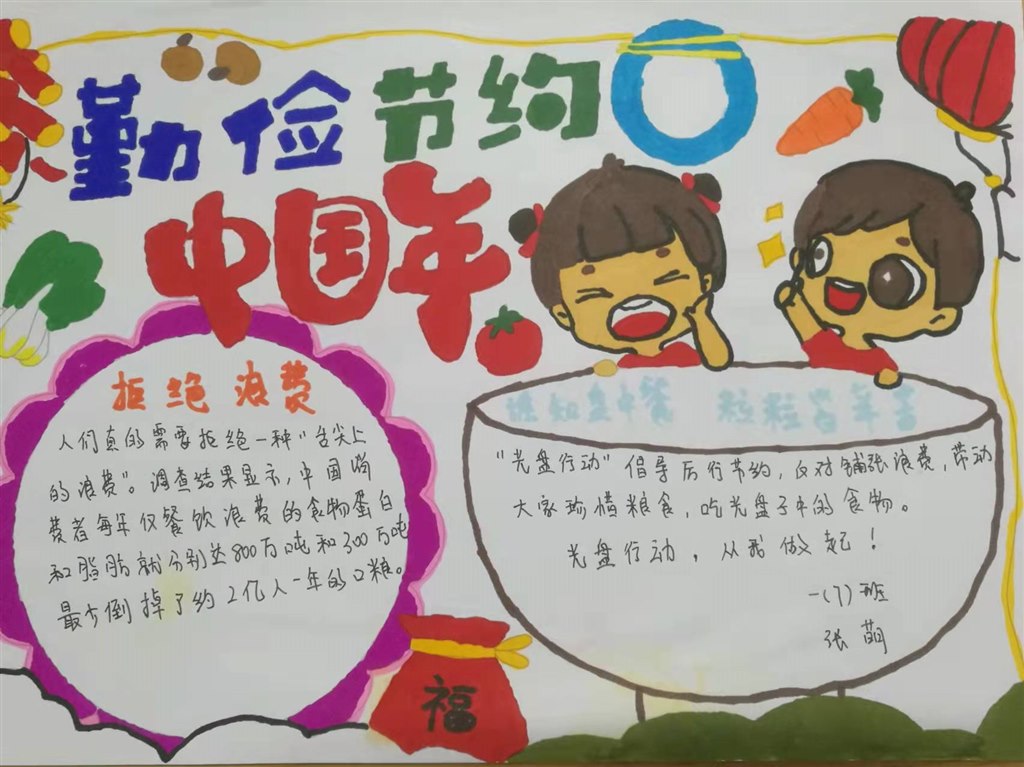 勤俭节约
中国年
拒绝浪费
人们真的需要拒绝一种"舌尖上
的浪费"。调查结果显示,中国消
费者每年仅餐饮浪费的食物蛋白
和脂肪就分别达800万吨和300万吨
最少倒掉了约2亿人一年的口粮。
谁知盘中餐 粒粒皆辛苦
"光盘行动"倡导厉行节约,反对铺张浪费,带动
大家珍惜粮食,吃光盘子中的食物。
光盘行动,从我做起!
一(7)班
张萌
福